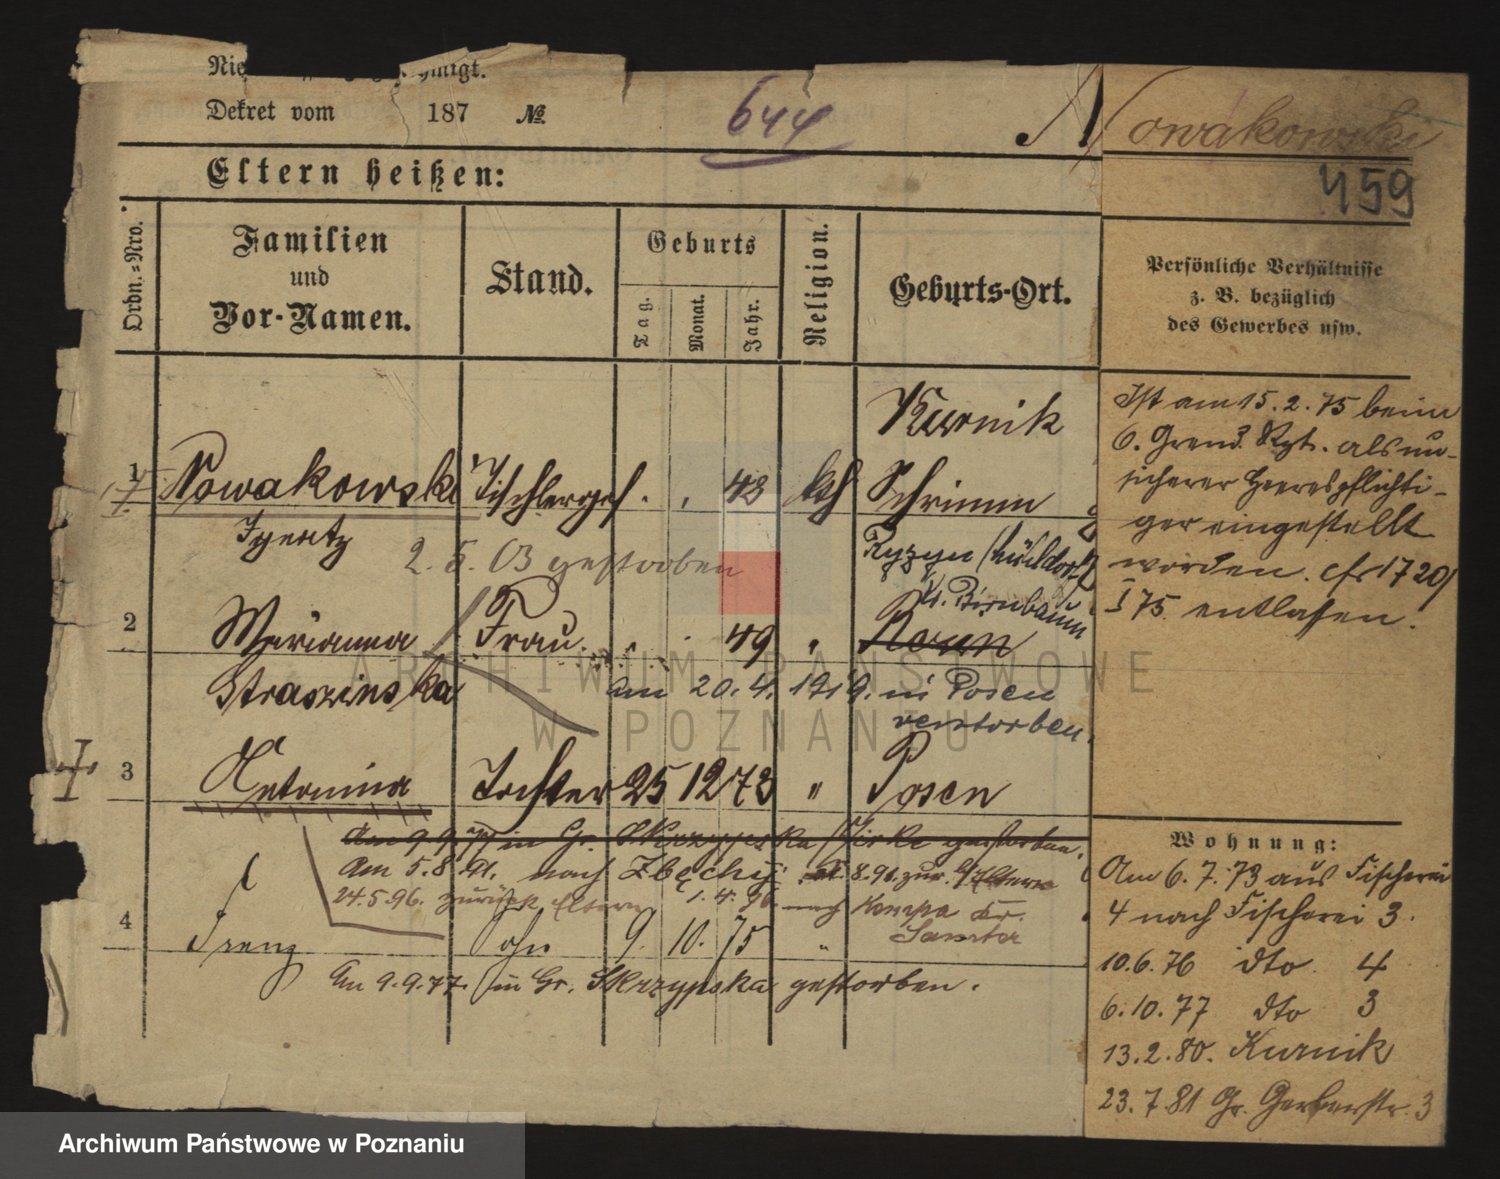 Dekret vom 187 №
644
Nowakowski
459
Eltern heißen:
Ordn.=Nro.
Familien
und
Vor-Namen.
Stand.
Geburts
Tag.
Monat.
Jahr.
Religion.
Geburts-Ort.
Persönliche Verhältnisse
z. B. bezüglich
des Gewerbes usw.
1 Nowakowski Tischlerges. 48 kth Kurnik
Schrimm
Ignatz
2. 5. 03 gestorben
2 Marianna Frau 49 "
Kr. Birnbaum
Posen
am 20. 4. 1919. in Posen
verstorben.
3 Antonina Tochter 25 12 73 " Posen
Am 9.9.77 in Gr. Skrzypska gestorben.
Am 5.8.91. nach Zbęchy 8.91. zur. Eltern
24.5.96. zurück Eltern 1.4.96. nach Kempa Kr.
Samter
4 Franz Sohn 9. 10. 75 "
Am 9.9.77. in Gr. Skrzypska gestorben.
Ist am 15.2.75 beim
6. Grend. Rgt. als un-
sicherer Heerespflichti-
ger eingestellt
worden. cfr 1720/
I 75 entlassen.
Wohnung:
Am 6.7.73 aus Fischerei
4 nach Fischerei 3.
10.6.76 dto 4
6.10.77 dto 3
13.2.80. Kurnik
23.7.81 Gr. Gerberstr. 3
ARCHIWUM PAŃSTWOWE
W POZNANIU
Archiwum Państwowe w Poznaniu